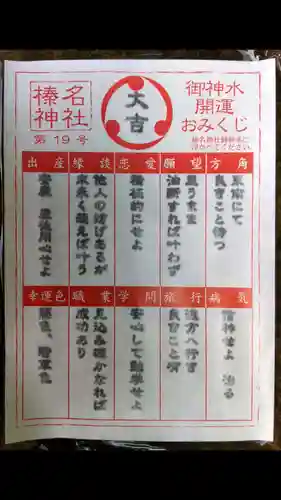 榛名神社
第19号
大吉
御神水
開運
おみくじ
榛名神社御神水に
浮かべてください
方角
東南にて
良きこと待つ
願望
思うまま
油断すれば叶わず
恋愛
積極的にせよ
縁談
他人の妨げあるが
末永く添えば叶う
出産
安産 産後用心せよ
病気
信神せよ 治る
旅行
遠方へ行吉
良きこと有
学問
安心して勉学せよ
職業
見込み確かなれば
成功あり
幸運色